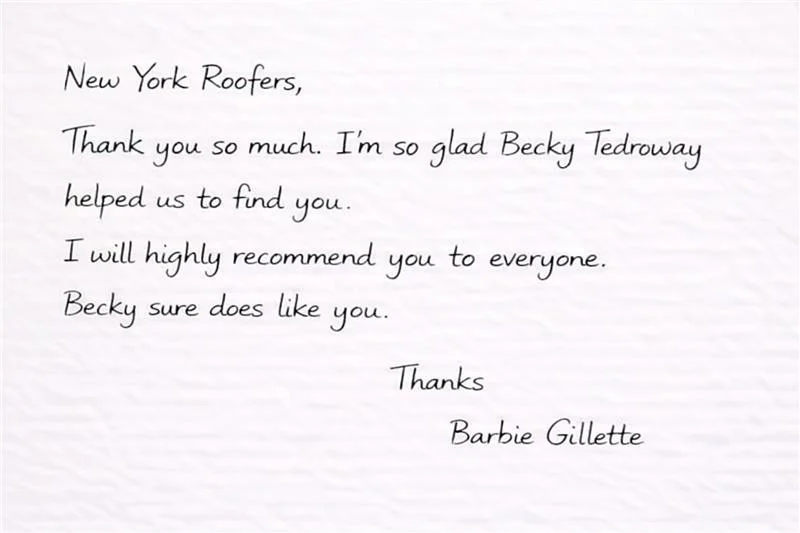 New York Roofers,
Thank you so much. I'm so glad Becky Tedroway
helped us to find you.
I will highly recommend you to everyone.
Becky sure does like you.
Thanks
Barbie Gillette